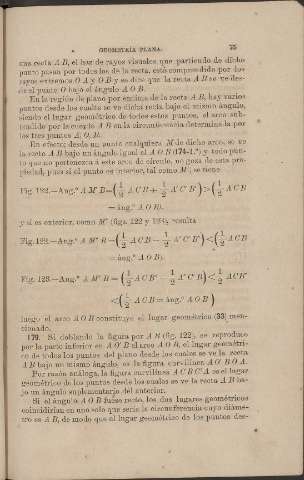 GEOMETRÍA PLANA. 75
una recta A B, el haz de rayos visuales, que partiendo de dicho
punto pasan por todos los de la recta, está comprendido por los
rayos extremos O A y O B y se dice que la recta A B se ve des-
de el punto O bajo el ángulo A O B.
En la región de plano por encima de la recta A B, hay varios
puntos desde los cuales se ve dicha recta bajo el mismo ángulo,
siendo el lugar geométrico de todos estos puntos, el arco sub-
tendido por la cuerda A B en la circunferencia determinada por
los tres puntos A, O, B.
En efecto: desde un punto cualquiera M de dicho arco, se ve
la recta A B bajo un ángulo igual al A O B (174-1.º) y todo pun-
to que no pertenezca á este arco de círculo, no goza de esta pro-
piedad, pues si el punto es interior, tal como M', se tiene
Fig. 122.—Ang.º A M' B = (1/2 A C B + 1/2 A' C' B') > (1/2 A C B
= áng.º A O B).
y si es exterior, como M'' (figs. 122 y 123), resulta
Fig. 122.—Ang.º A M'' B = (1/2 A C B — 1/2 A' C' B') < (1/2 A C B
= áng.º A O B).
Fig. 123.—Ang.º A M'' B = (1/2 A C B' — 1/2 A' C' B) < 1/2 A C B'
< (1/2 A C B = áng.º A O B)
luego el arco A O B constituye el lugar geométrico (33) men-
cionado.
179. Si doblando la figura por A B (fig. 122), se reproduce
por la parte inferior en A O' B el arco A O B, el lugar geométri-
co de todos los puntos del plano desde los cuales se ve la recta
A B bajo un mismo ángulo, es la figura curvilínea A O' B O A.
Por razón análoga, la figura curvilínea A C B C' A es el lugar
geométrico de los puntos desde los cuales se ve la recta A B ba-
jo un ángulo suplementario del anterior.
Si el ángulo A O B fuese recto, los dos lugares geométricos
coincidirían en uno solo que sería la circunferencia cuyo diáme-
tro es A B, de modo que el lugar geométrico de los puntos des-